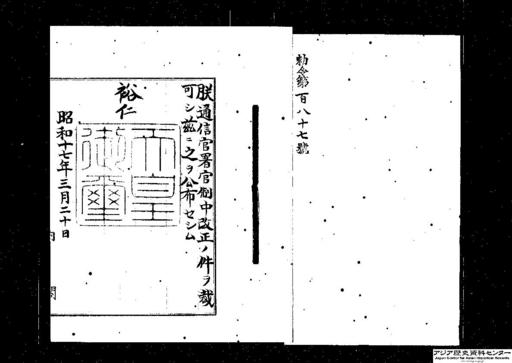 勅令第百八十七號
朕通信官署官制中改正ノ件ヲ裁
可シ茲ニ之ヲ公布セシム
裕仁
天皇
御璽
昭和十七年三月二十日
内閣
アジア歴史資料センター
Japan Center for Asian Historical Records